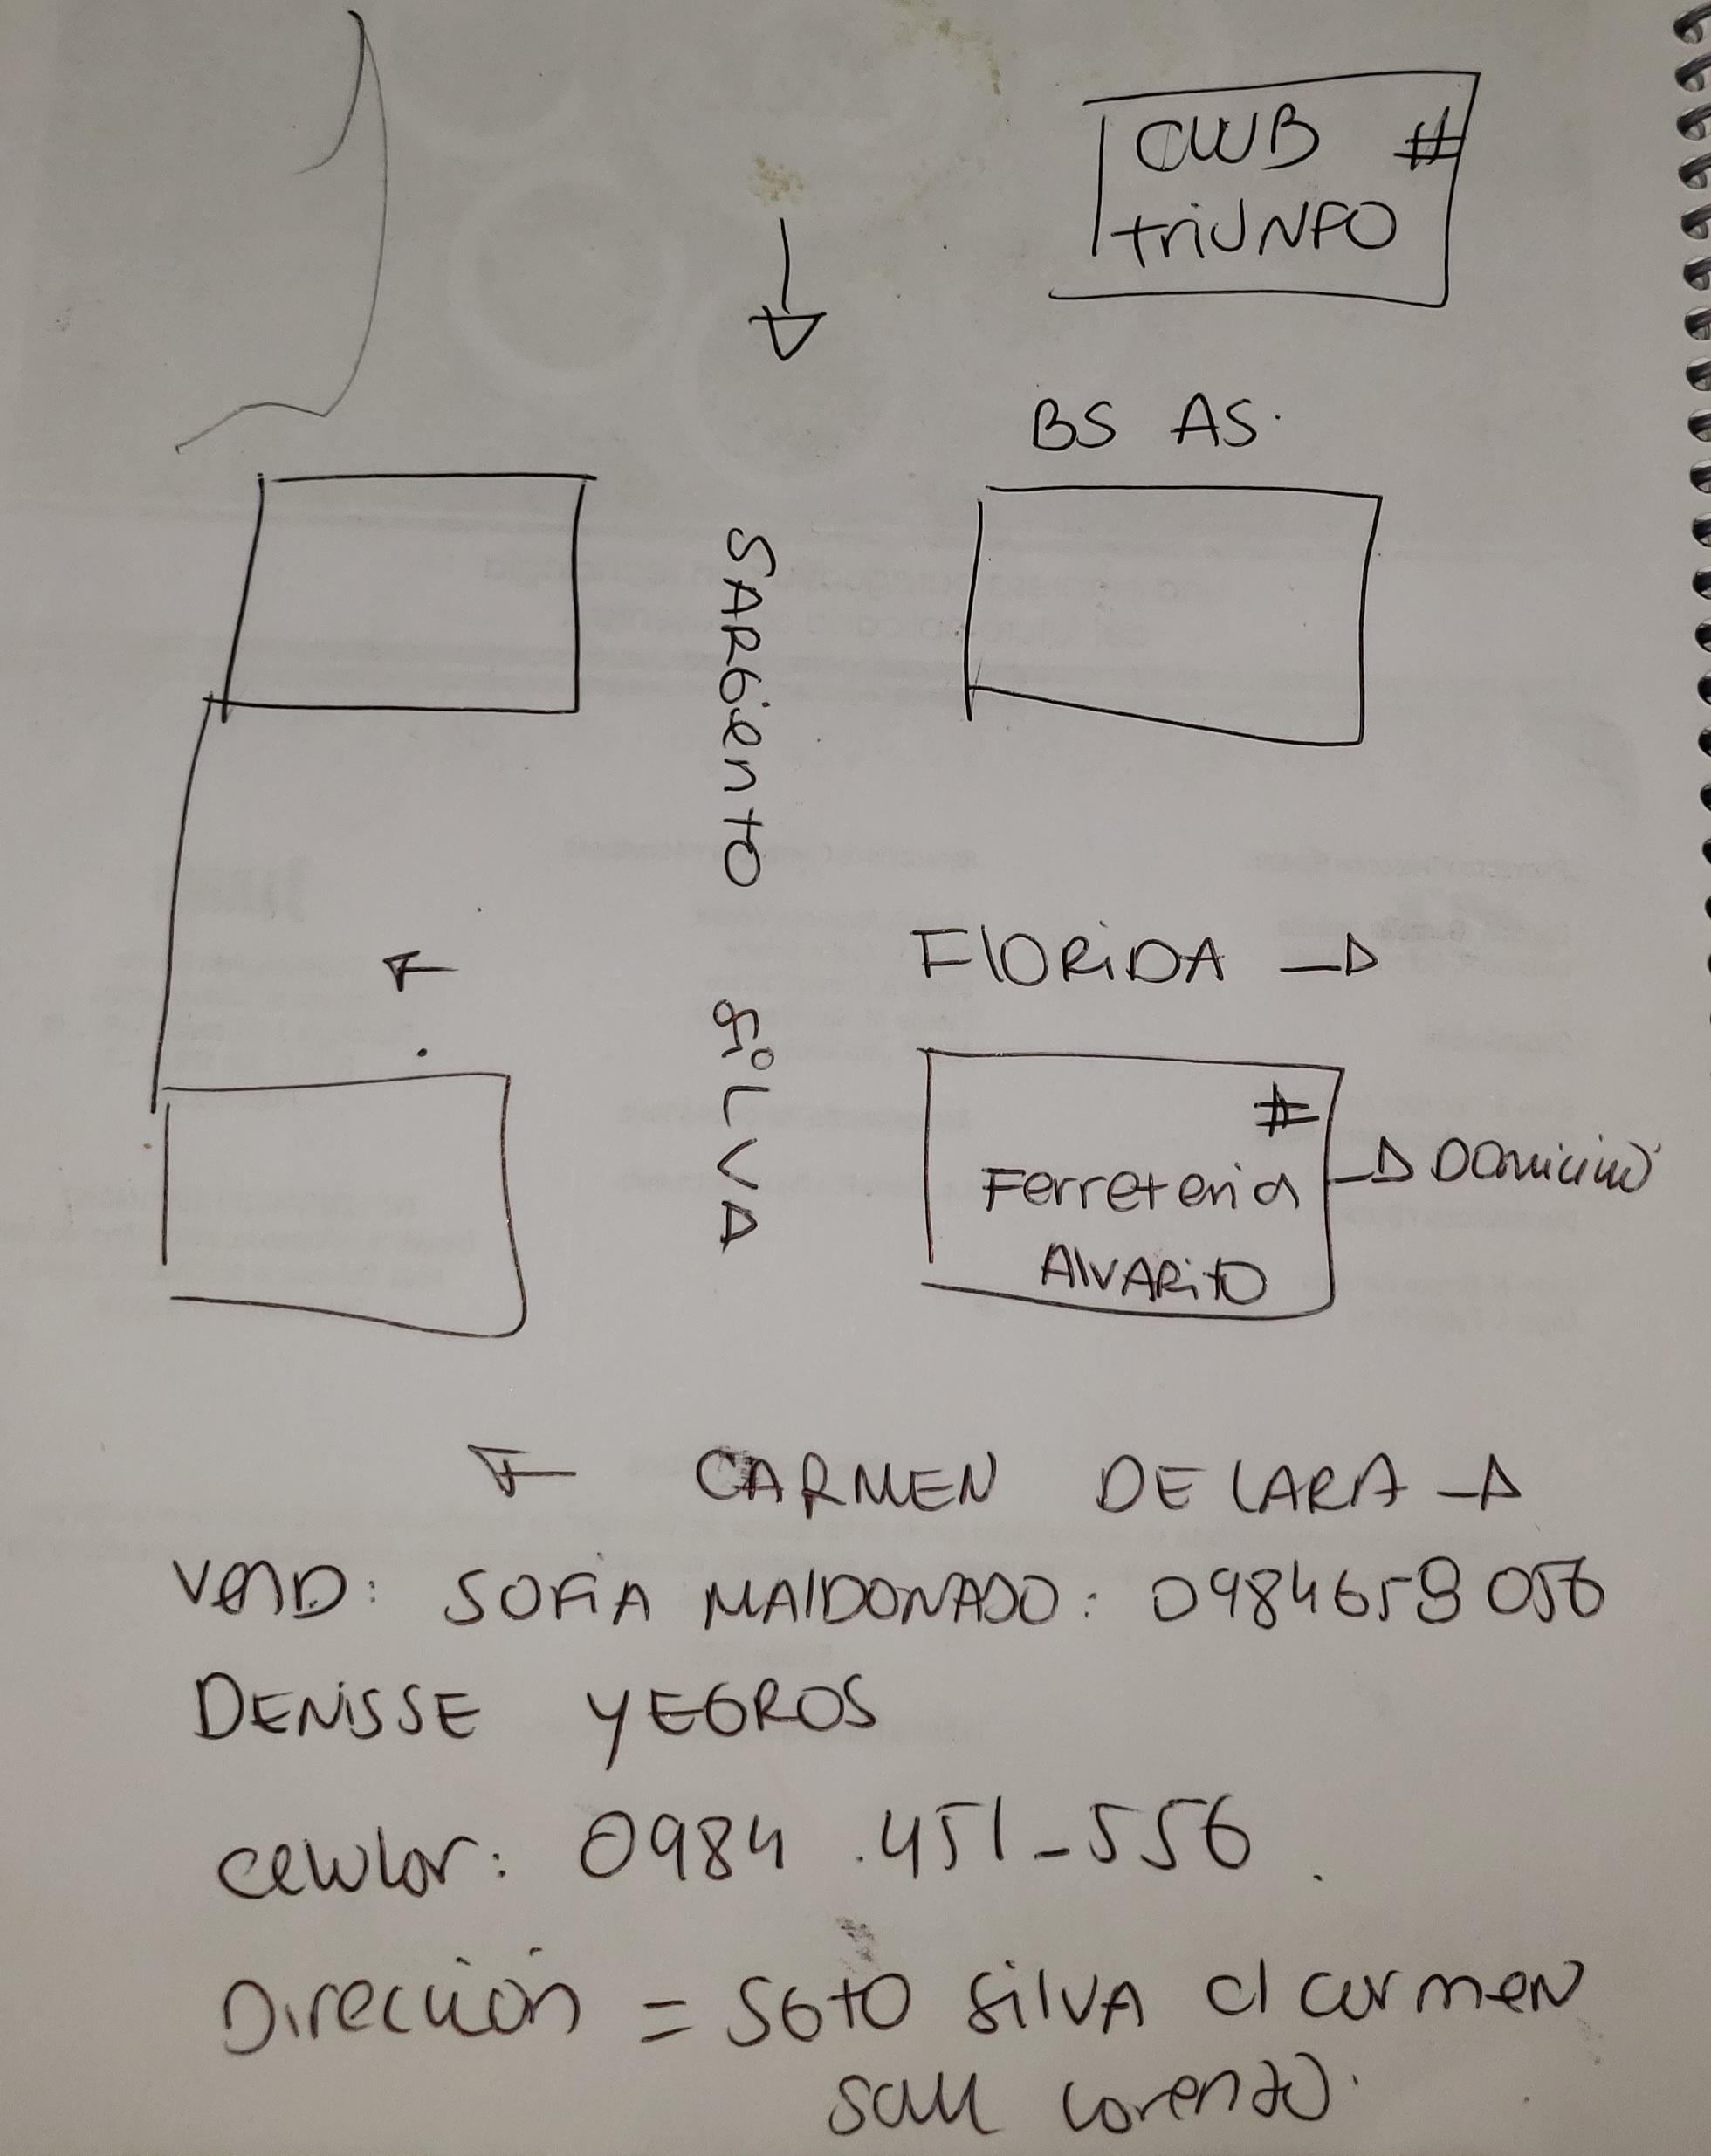 CLUB #
triUNFO
BS AS.
SARGiento SiLVA
FlORiDA
#
Ferreteria
AlVARitO
Domicilio
CARMEN DE LARA
VEND: SOFiA MAlDONADO: 0984659056
DENiSSE YEGROS
celular: 0984.451-556.
Dirección = SGtO SilVA c/ carmen
San Lorenzo.